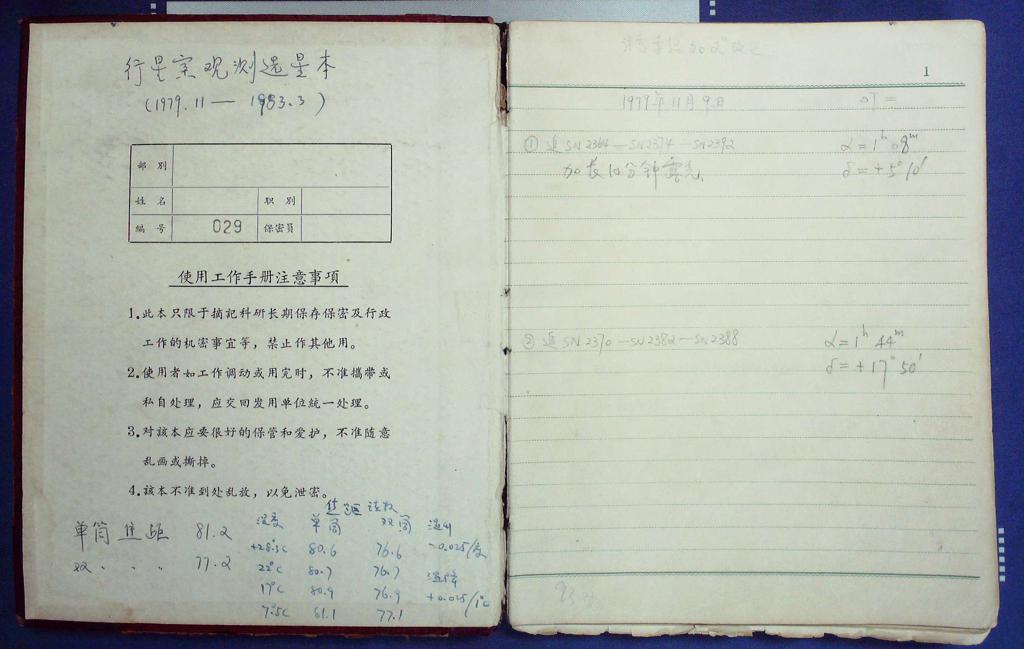 行星室观测选星本
(1979.11 — 1983.3)
部 别
姓 名 职 别
编 号 029 保密員
使用工作手册注意事項
1.此本只限于摘記科研长期保存保密及行政
工作的机密事宜等，禁止作其他用。
2.使用者如工作调动或用完时，不准攜带或
私自处理，应交回发用单位統一处理。
3.对該本应要很好的保管和爱护，不准随意
乱画或撕掉。
4.該本不准到处乱放，以免泄密。
焦距读数
温度 单筒 双筒 温升
单筒焦距 81.2
+28.5C 80.6 76.6 -0.025/度
双 〃 〃 77.2
22°C 80.7 76.7 温降
17°C 80.9 76.9 +0.025/1°C
7.5C 81.1 77.1
1
1979年11月9日 UT =
① 追 SN2364 — SN2374 — SN2392 α = 1h 08m
加长10分钟露光 δ = +5° 10'
② 追 SN2370 — SN2382 — SN2388 α = 1h 44m
δ = +17° 50'